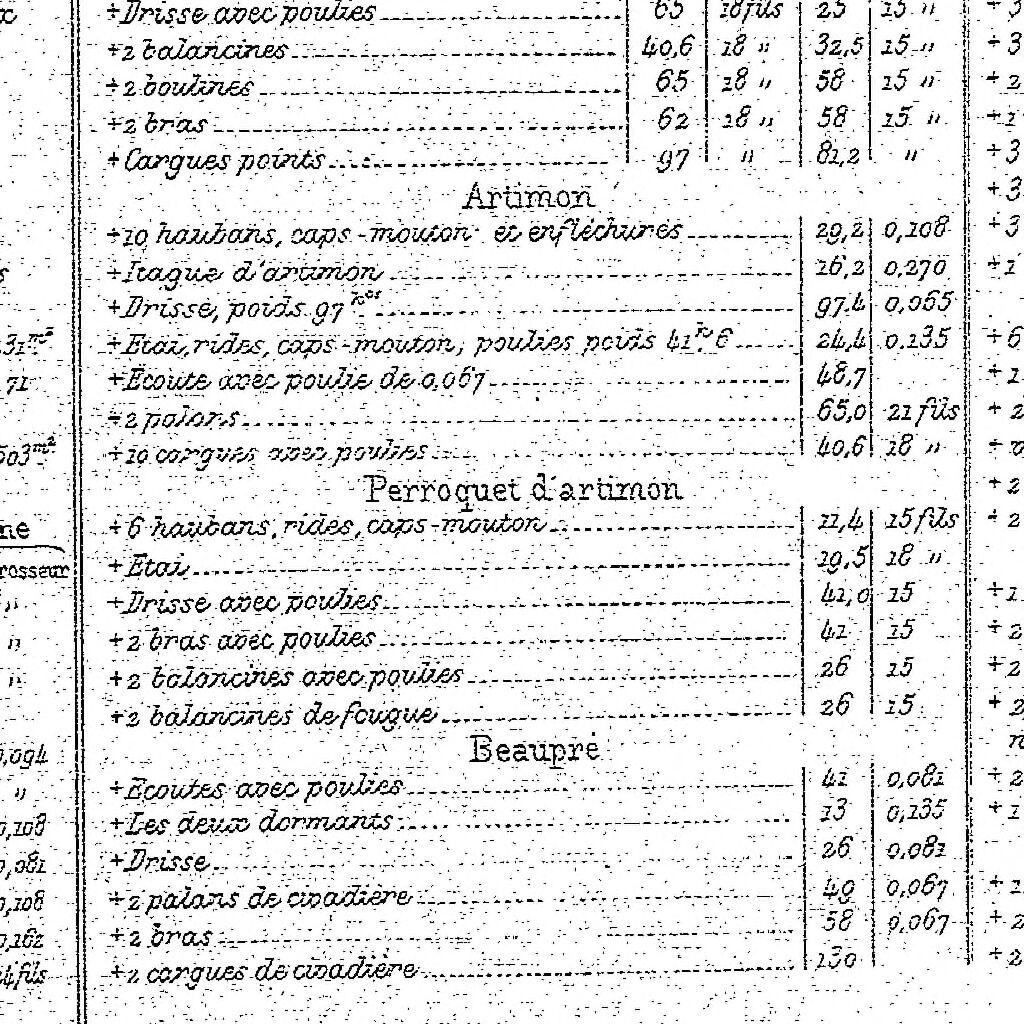 +Drisse avec poulies 65 18 fils 25 15 "
+2 balancines 40,6 18 " 32,5 15 "
+2 boulines 65 18 " 58 15 "
+2 bras 62 18 " 58 15 "
+Cargues points 97 " 81,2 "
Artimon
+10 haubans, caps-mouton et enfléchures 29,2 0,108
+Itague d'artimon 16,2 0,270
+Drisse, poids 97 kos 97.4 0,065
+Etai, rides, caps-mouton, poulies poids 41 k. 6 24,4 0.135
+Ecoute avec poulie de 0,067 48,7
+2 palans 65,0 21 fils
+10 cargues avec poulies 40,6 18 "
Perroquet d'artimon
+6 haubans, rides, caps-mouton 11,4 15 fils
+Etai 19,5 18 "
+Drisse avec poulies 41,0 15
+2 bras avec poulies 41 15
+2 balancines avec poulies 26 15
+2 balancines de fougue 26 15
Beaupré
+Ecoutes avec poulies 41 0,081
+Les deux dormants 13 0,135
+Drisse 26 0,081
+2 palans de civadière 49 0,067
+2 bras 58 0,067
+2 cargues de civadière 130
31 m2
71
503 m2
ne
rosseur
"
"
"
0,094
"
0,108
0,081
0,108
0,162
4 fils
+3
+3
+2
+1
+3
+3
+3
+1
+6
+1
+2
+2
+2
+1
+2
+2
+2
+2
+1
+1
+2
+2